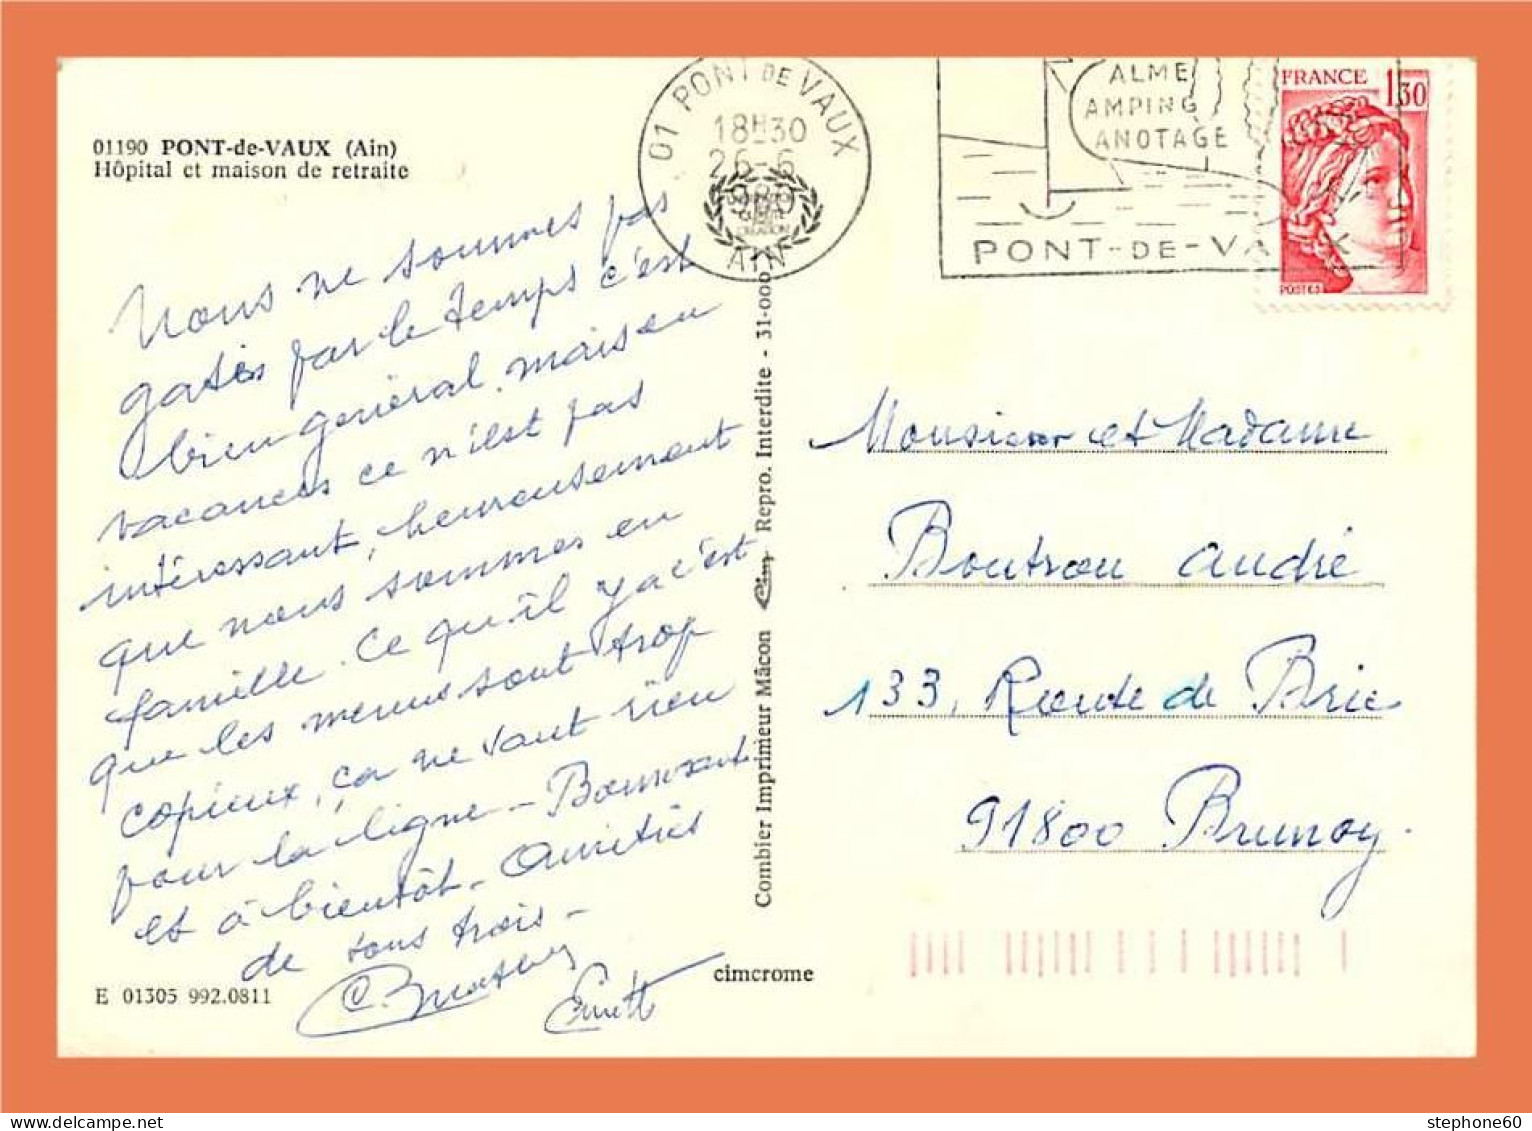 01190 PONT-de-VAUX (Ain)
Hôpital et maison de retraite
Nous ne sommes pas
gatés par le temps c'est
bien général, mais en
vacances ce n'est pas
intéressant, heureusement
que nous sommes en
famille. Ce qu'il y a c'est
que les menus sont trop
copieux, ça ne vaut rien
pour la ligne - Bonne santé
et à bientôt - Amitiés
de tous trois -
E 01305 992.0811
cimcrome
Combier Imprimeur Mâcon Cim Repro. Interdite - 31-000
01 PONT DE VAUX
18H30
26-6
980
AIN
ALME
AMPING
ANOTAGE
PONT-DE-VA X
FRANCE
1,30
POSTES
Monsieur et Madame
Boutron André
133, Route de Brie
91800 Brunoy.
stephone60